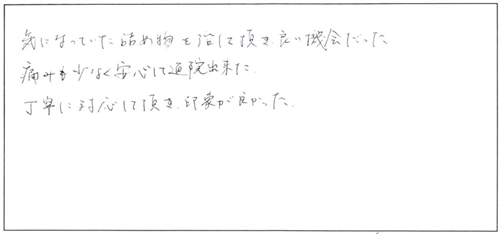 気になっていた詰め物を治して頂き良い機会だった
痛みも少なく安心して通院出来た.
丁寧に対応して頂き、印象が良かった.